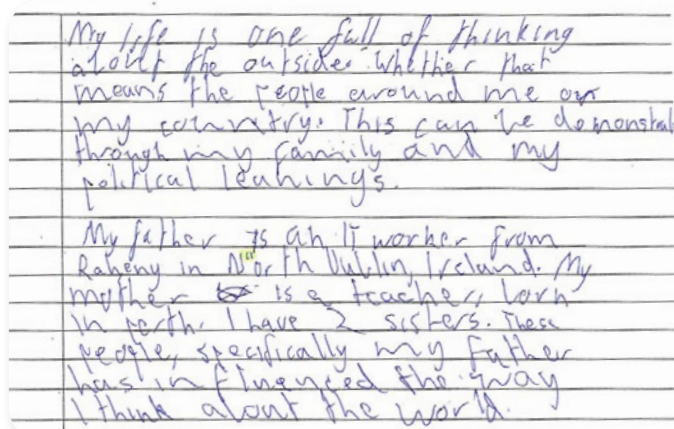 My life is one full of thinking
about the outside. Whether that
means the people around me or
my country. This can be demonstrat
through my family and my
political leanings.
My father is an IT worker from
Raheny in North Dublin, Ireland. My
mother is a teacher, born
in perth. I have 2 sisters. These
people, specifically my father
has influenced the way
I think about the world.